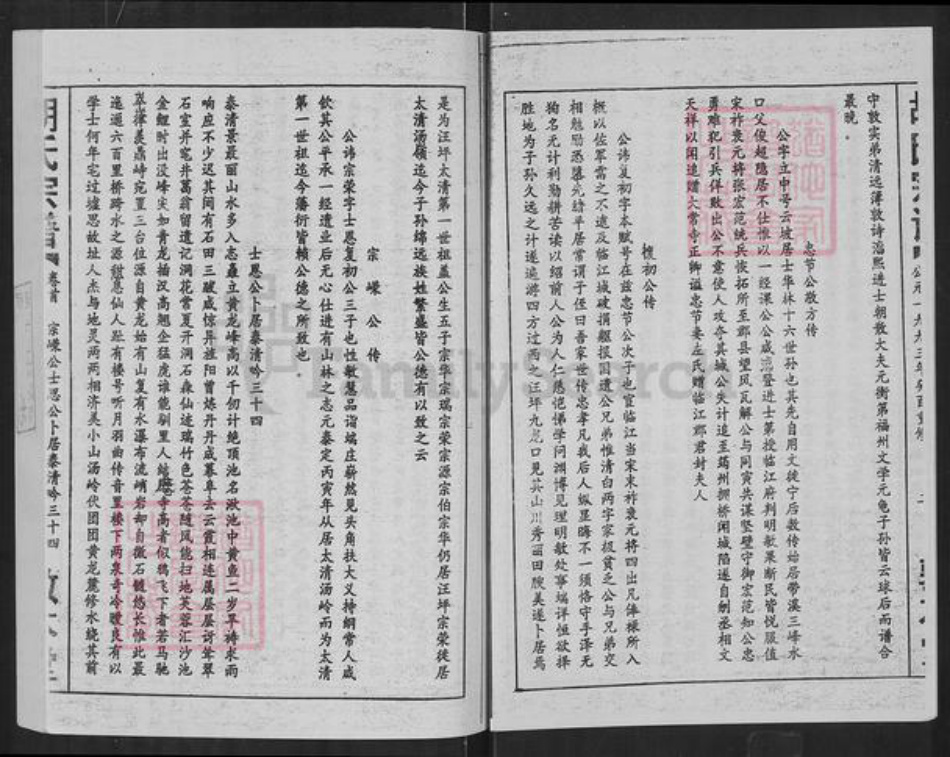 中敦实弟清远薄敦诗淄熙进士朝散大夫元衡第福州文学元龟子孙皆云球后而谱合
最晚。
忠节公敖方传
公字立中号云坡居士华林十六世孙也其先自用文徙宁后数传始居带溪三峰水
口父俊超隐居不仕惟以一经课公公咸淳登进士第授临江府判明敏果断民皆悦服值
宋祚衰元将张宏范统兵恢拓所至郡县望风瓦解公与同寅共谋坚壁守御宏范知公忠
勇难犯引兵佯败出公不意使人攻夺其城公失计追至筠州拥桥闻城陷遂自刎丞相文
天祥以闻追赠大常寺正卿谥忠节妻左氏赠临江郡君封夫人
复初公传
公讳复初字本赋号在兹忠节公次子也宦临江当宋末祚衰元将四出凡俸禄所入
概以佐军需之不逮及临江城破捐躯报国遗公兄弟惟清白两字家极贫乏公与兄弟交
相勉励恐堕先绪平居常谓子侄曰吾家世传忠孝凡我后人纵显晦不一须恪守手泽无
狥名无计利勤耕苦读以绍前人公为人仁慈恺悌学问渊博见理明敏处事端详恒欲择
胜地为子孙久远之计遂遍游四方过西之汪坪九龙口见其山川秀丽田腴美遂卜居焉
是为汪坪太清第一世祖盖公生五子宗华宗瑞宗荣宗源宗伯宗华仍居汪坪宗荣徙居
太清汤岭迄今子孙绵远族姓繁盛皆公德有以致之云
宗嵘公传
公讳宗荣字士恩复初公三子也性敏慧品诣端庄崭然见头角扶大义持纲常人咸
钦其公平承一经遗业后无心仕进有山林之志元泰定丙寅年从居太清汤岭而为太清
第一世祖迄今藩衍皆赖公德之所致也
士恩公卜居泰清吟三十四
泰清景最丽山水多入志矗立黄龙峰高以千仞计绝顶池名湫池中黄鱼二岁旱祷求雨
响应不少迟其间有石田三跛威惊异旌阳曾炼丹丹成募阜去云霞相连属层层讶耸翠
石室并宪井葛翁留遗记洞花常夏开洞石森仙迹瑞竹色苍苍随风能扫地芙蓉汇沙池
金鲤时出没峰尖如青龙插汉高翘企猛虎谁能驯里人结愿寺高者似鹅飞下者若马驰
萃嵂姜鼎峙宛置三台位源自黄龙始有山复有水瀑布流峭岩却自微石髓悠长惟此最
迤逦六百里桥跨水之源甜息仙人趾有楼号听月羽曲传音里楼下两泉奇冷暖良有以
学士何年宅过墟思故址人杰与地灵两两相济美小山汤岭伏团团黄龙麓修水绕其前
胡氏宗谱 卷首 宗嵘公士思公卜居泰清吟三十四
公元一九九三年癸酉重修